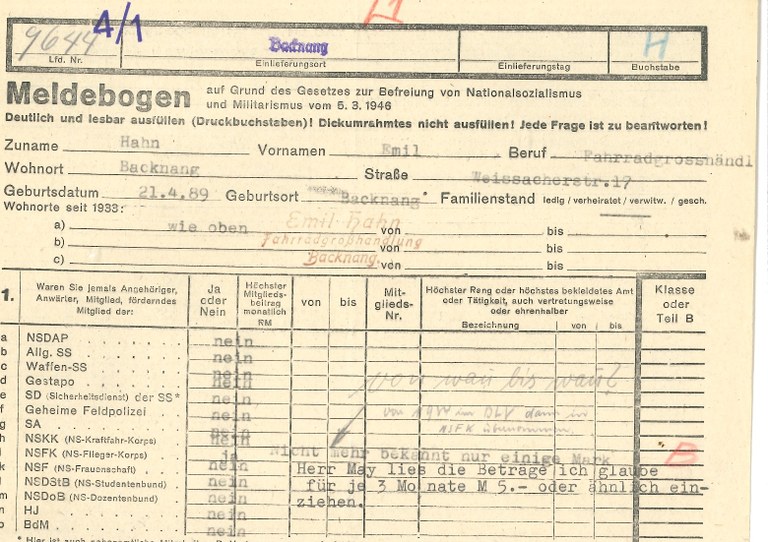 9644 A/1
Backnang
H
Lfd. Nr. Einlieferungsort Einlieferungstag Buchstabe
Meldebogen auf Grund des Gesetzes zur Befreiung von Nationalsozialismus
und Militarismus vom 5. 3. 1946
Deutlich und lesbar ausfüllen (Druckbuchstaben)! Dickumrahmtes nicht ausfüllen! Jede Frage ist zu beantworten!
Zuname Hahn Vornamen Emil Beruf Fahrradgrosshändl
Wohnort Backnang Straße Weissacherstr.17
Geburtsdatum 21.4.89 Geburtsort Backnang Familienstand ledig / verheiratet / verwitw. / gesch.
Wohnorte seit 1933:
Emil Hahn
a) wie oben von bis
Fahrradgroßhandlung
b) von bis
Backnang
c) von bis
1. Waren Sie jemals Angehöriger, Anwärter, Mitglied, förderndes Mitglied der: Ja oder Nein Höchster Mitgliedsbeitrag monatlich RM von bis Mitglieds-Nr. Höchster Rang oder höchstes bekleidetes Amt oder Tätigkeit, auch vertretungsweise oder ehrenhalber Klasse oder Teil B
Bezeichnung von bis
a NSDAP nein
b Allg. SS nein
c Waffen-SS nein
d Gestapo nein von wann bis wann?
e SD (Sicherheitsdienst) der SS* nein
f Geheime Feldpolizei nein von in DLV dann in
g SA nein NSFK übernommen.
h NSKK (NS-Kraftfahr-Korps) nein
i NSFK (NS-Flieger-Korps) ja Nicht mehr bekannt nur einige Mark B
k NSF (NS-Frauenschaft) nein Herr May lies die Beträge ich glaube
l NSDStB (NS-Studentenbund) nein für je 3 Monate M 5.- oder ähnlich ein-
m NSDoB (NS-Dozentenbund) nein ziehen.
n HJ nein
o BdM nein